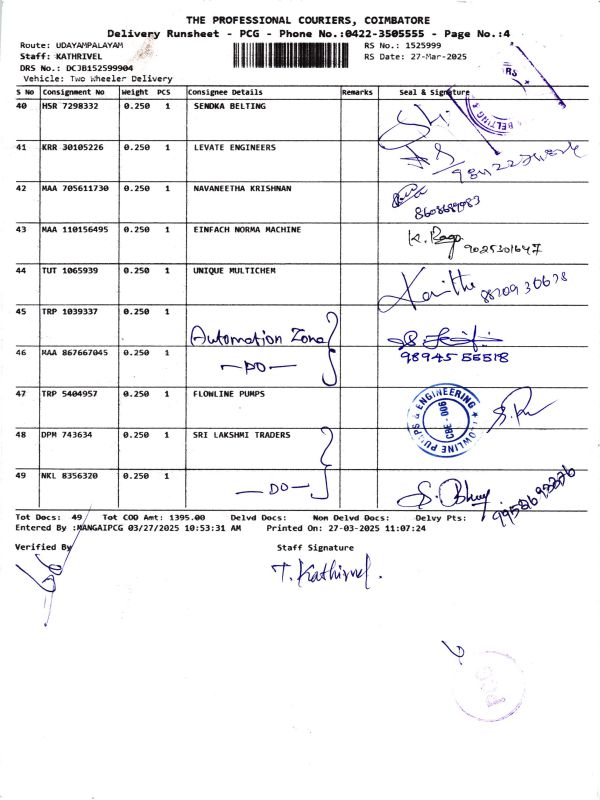 THE PROFESSIONAL COURIERS, COIMBATORE
Delivery Runsheet - PCG - Phone No.:0422-3505555 - Page No.:4
Route: UDAYAMPALAYAM RS No.: 1525999
Staff: KATHRIVEL RS Date: 27-Mar-2025
DRS No.: DCJB152599904
Vehicle: Two Wheeler Delivery
S No Consignment No Weight PCS Consignee Details Remarks Seal & Signature
40 HSR 7298332 0.250 1 SENDKA BELTING
41 KRR 30105226 0.250 1 LEVATE ENGINEERS
42 MAA 705611730 0.250 1 NAVANEETHA KRISHNAN
8608689983
43 MAA 110156495 0.250 1 EINFACH NORMA MACHINE K. Raga 9025301647
44 TUT 1065939 0.250 1 UNIQUE MULTICHEM
8820930678
45 TRP 1039337 0.250 1 Automation Zone
46 MAA 867667045 0.250 1 — DO — 98945 55518
47 TRP 5404957 0.250 1 FLOWLINE PUMPS FLOWLINE PUMPS & ENGINEERING CBE - 006
48 DPM 743634 0.250 1 SRI LAKSHMI TRADERS
49 NKL 8356320 0.250 1 — DO —
Tot Docs: 49 Tot COD Amt: 1395.00 Delvd Docs: Non Delvd Docs: Delvy Pts:
Entered By :MANGAIPCG 03/27/2025 10:53:31 AM Printed On: 27-03-2025 11:07:24
Verified By Staff Signature
T. Kathirvel.